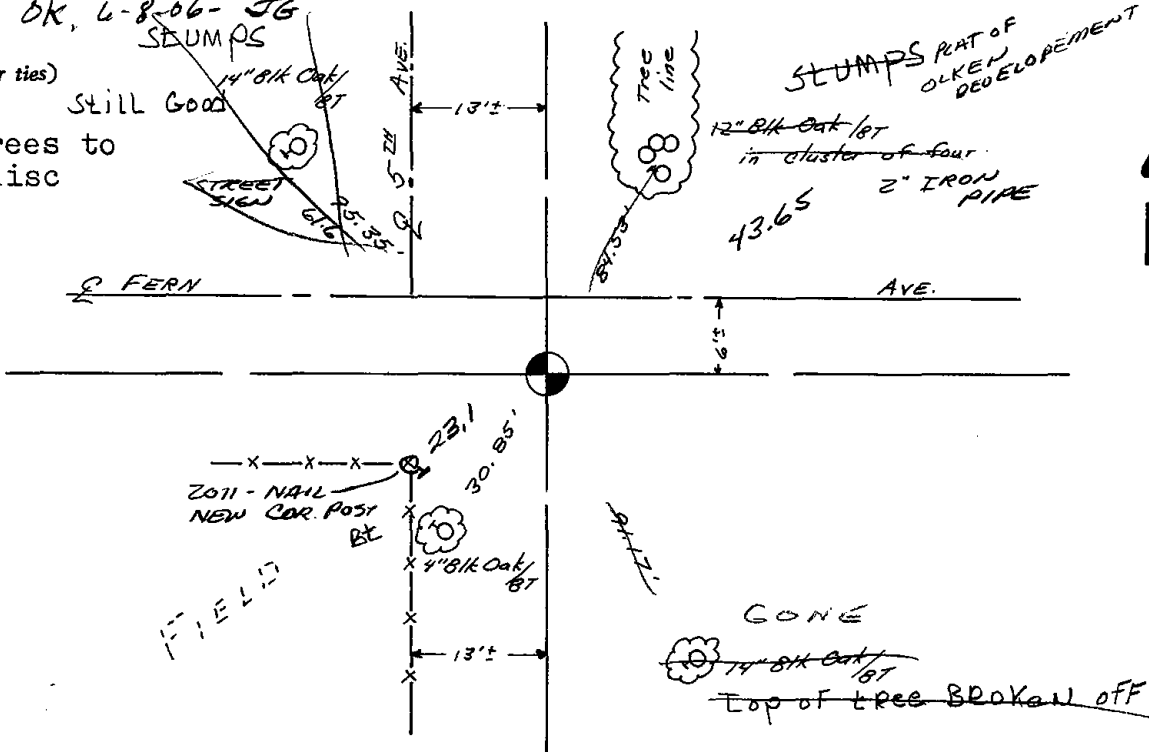 OK, 6-8-06- JG
STUMPS
r ties)
14" Blk Oak/
BT
Still Good
rees to
isc
STREET
SIGN
61.6
95.35'
℄ 5TH AVE.
13'±
Tree
line
84.53'
STUMPS PLAT OF
OLKEN
DEVELOPEMENT
12" Blk Oak/BT
in cluster of four
2" IRON
PIPE
43.65
℄ FERN AVE.
6'±
23.1
30.85'
2011 - NAIL
NEW COR. POST
Bt
4" Blk Oak/
BT
FIELD
13'±
91.17'
GONE
14" Blk Oak/
BT
Top of tree BROKEN off